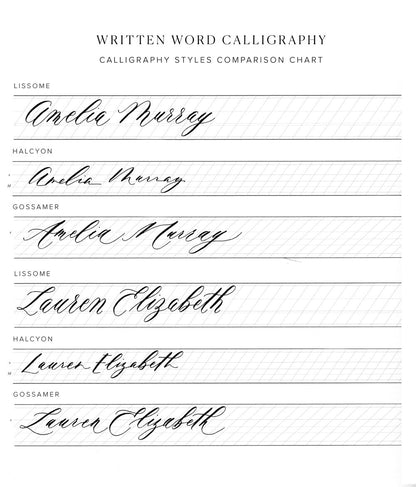 WRITTEN WORD CALLIGRAPHY
CALLIGRAPHY STYLES COMPARISON CHART
LISSOME
Amelia Murray
HALCYON
Amelia Murray
GOSSAMER
Amelia Murray
LISSOME
Lauren Elizabeth
HALCYON
Lauren Elizabeth
GOSSAMER
Lauren Elizabeth